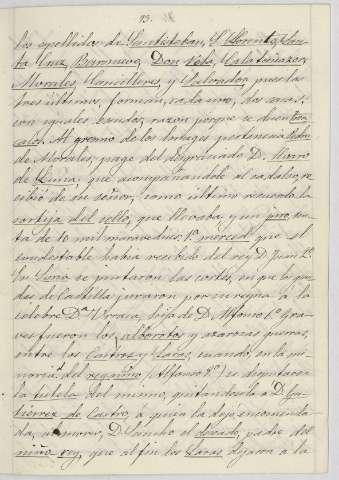 13.
los apellidos de Santisteban, S. Llorente, San-
ta Cruz, Barnuevo, Don Vela, Calatañazor,
Morales, Cancilleres, y Salvador, pues los
tres últimos, forman, cada uno, dos
con iguales razon porque se dicen tron
cales. Al gremio de los linages pertenecia
de Morales, page del desgraciado D. Alvaro
de Luna, que acompañandole al cadalso, re
cibió de su señor, como último recuerdo la
sortija del sello, que llevaba y un juro, ren-
ta de 10 mil maravedises 1ª merced que el
condestable habia recibido del rey D. Juan 2º
En Soria se juntaron las cortes, en que los gran
des de Castilla juraron por su reyna á la
celebre Dª Urraca, hija de D. Alfonso 6º Gra-
ves fueron los alborotos y azarosas guerras,
entre los Castros y Laras, cuando, en la mi-
noria del rey niño (Alfonso 8º) se disputaron
la tutela del mismo, quitandosela á D. Gu-
tierrez de Castro, á quien la dejo encomenda-
da, al morir, D. Sancho el deseado, padre del
niño rey, que al fin los Laras dejaron á la